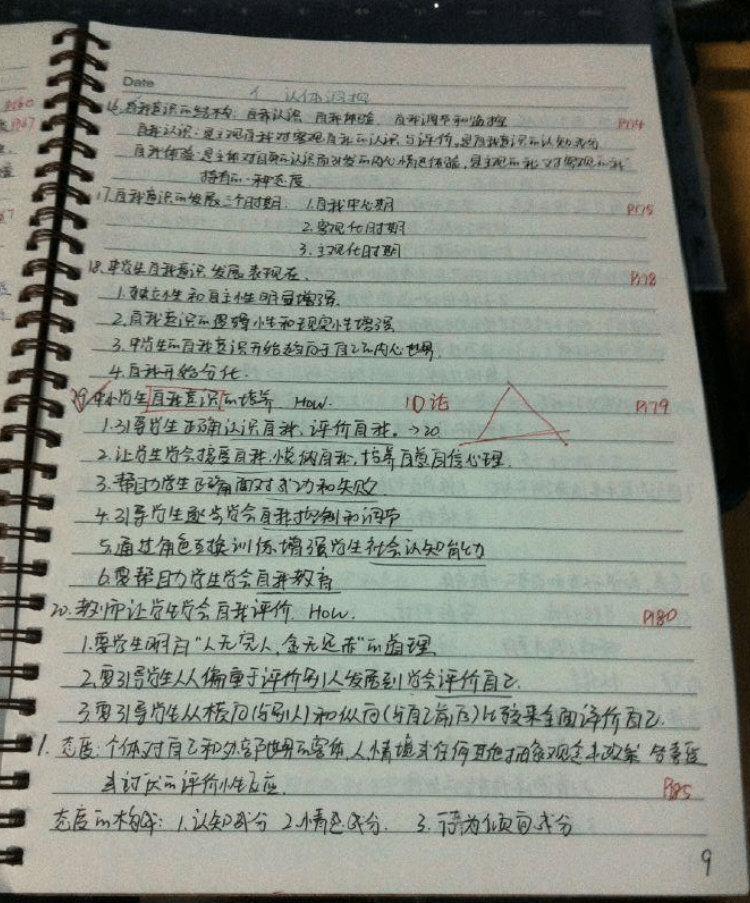 Date
个 认体调控
16.自我意识的结构：自我认识 自我体验 自我调节和监控 P174
自我认识：是主观自我对客观自我的认识与评价，是自我意识的认知成分
自我体验：是主体对自身的认识而引发的内心情感体验，是主观的我对客观的我
持有的一种态度
17.自我意识的发展三个时期：1.自我中心期 P175
2.客观化时期
3.主观化时期
18.中学生自我意识发展表现在 P178
1.独立性和自主性明显增强
2.自我意识的逻辑性和现实性增强
3.中学生的自我意识开始趋向于自己的内心世界
4.自我开始分化.
19.中小学生自我意识的培养 How. 10论 P179
1.引导学生正确认识自我、评价自我。→20
2.让学生学会接受自我、悦纳自我，培养自尊自信心理.
3.帮助学生正确面对成功和失败
4.引导学生逐步学会自我控制和调节
5.通过角色互换训练，增强学生社会认知能力
6.要帮助学生学会自我教育
20.教师让学生学会自我评价 How. P180
1.要学生明白“人无完人，金无足赤”的道理
2.要引导学生从偏重于评价别人发展到学会评价自己.
3.要引导学生从横向(与别人)和纵向(与自己前后)比较来全面评价自己.
1.态度：个体对自己和外部世界的客体、人、情境或任何其他抽象观念或政策 喜爱
或讨厌的评价性反应. P185
态度的构成：1.认知成分 2.情感成分. 3.行为倾向成分
9
P160
P167